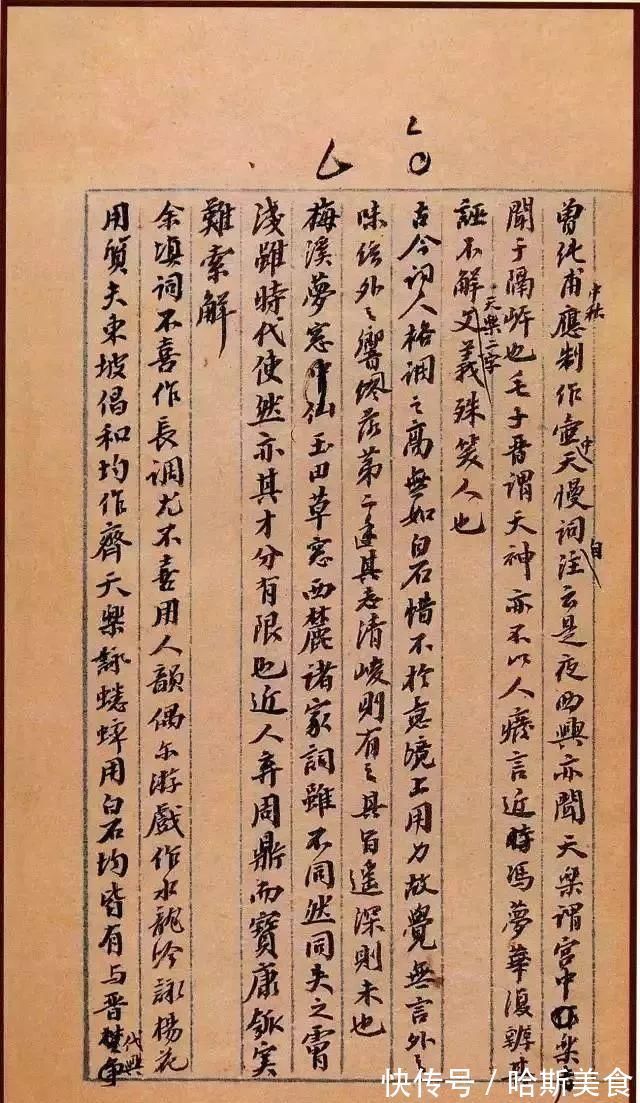 曾純甫中秋應制作壺中天慢詞自注云是夜西興亦聞天樂謂宮中樂聲
聞于隔岸也毛子晉謂天神亦不以人廢言近時馮夢華復辨其
誣不解天樂二字文義殊笑人也
古今詞人格調之高無如白石惜不於意境上用力故覺無言外之
味弦外之響終落第二其志清峻則有之其旨遙深則未也
梅溪夢窓中仙玉田草窓西麓諸家詞雖不同然同失之膚
淺雖時代使然亦其才分有限也近人弃周鼎而寶康瓠实
難索解
余填詞不喜作長調尤不喜用人韻偶尔游戲作水龍吟詠楊花
用質夫東坡倡和均作齊天樂詠蟋蟀用白石均皆有与晋代興
快传号／哈斯美食